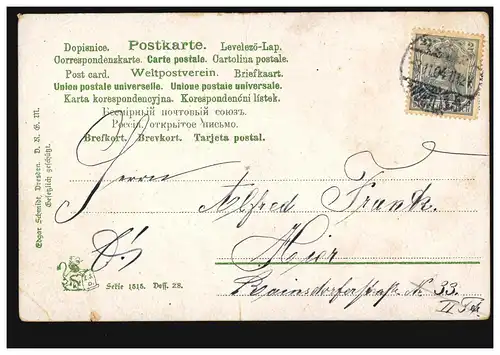 Dopisnice. Postkarte. Levelező-Lap.
Correspondenzkarte. Carte postale. Cartolina postale.
Post card. Weltpostverein. Briefkaart.
Union postale universelle. Unione postale universale.
Karta korespondencyjna. Korespondenóní lístek.
Всемірный почтовый союзъ.
Россія, открытое письмо.
Brefkort. Brevkort. Tarjeta postal.
Edgar Schmidt, Dresden. D. R. G. M.
Gesetzlich geschützt.
2
Herrn
Alfred Frank
Hier
Serie 1515. Dess. 28.
Rainsdorferstraße No 33.
II